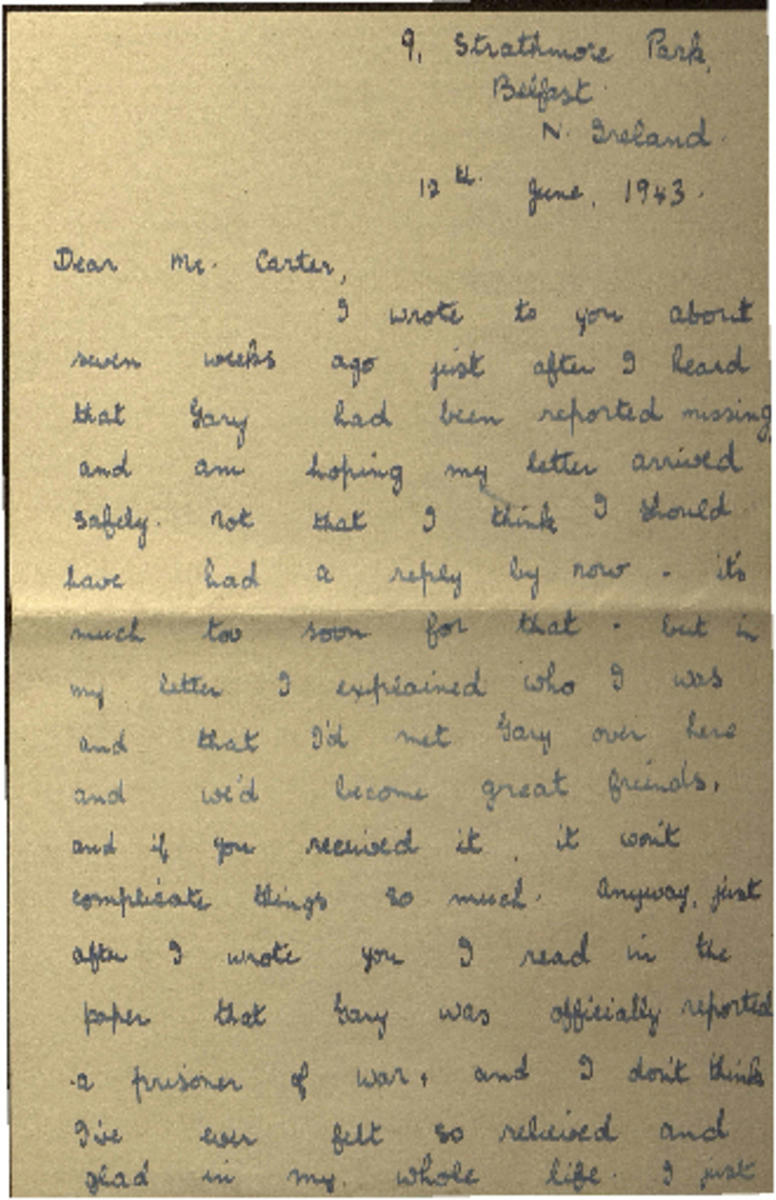 9, Strathmore Park,
Belfast
N. Ireland.
12th June, 1943.
Dear Mr. Carter,
I wrote to you about
seven weeks ago just after I heard
that Gary had been reported missing
and am hoping my letter arrived
safely. Not that I think I should
have had a reply by now - it's
much too soon for that - but in
my letter I explained who I was
and that I'd met Gary over here
and we'd become great friends,
and if you received it, it won't
complicate things so much. Anyway, just
after I wrote you I read in the
paper that Gary was officially reported
a prisoner of war, and I don't think
I've ever felt so relieved and
glad in my whole life. I just